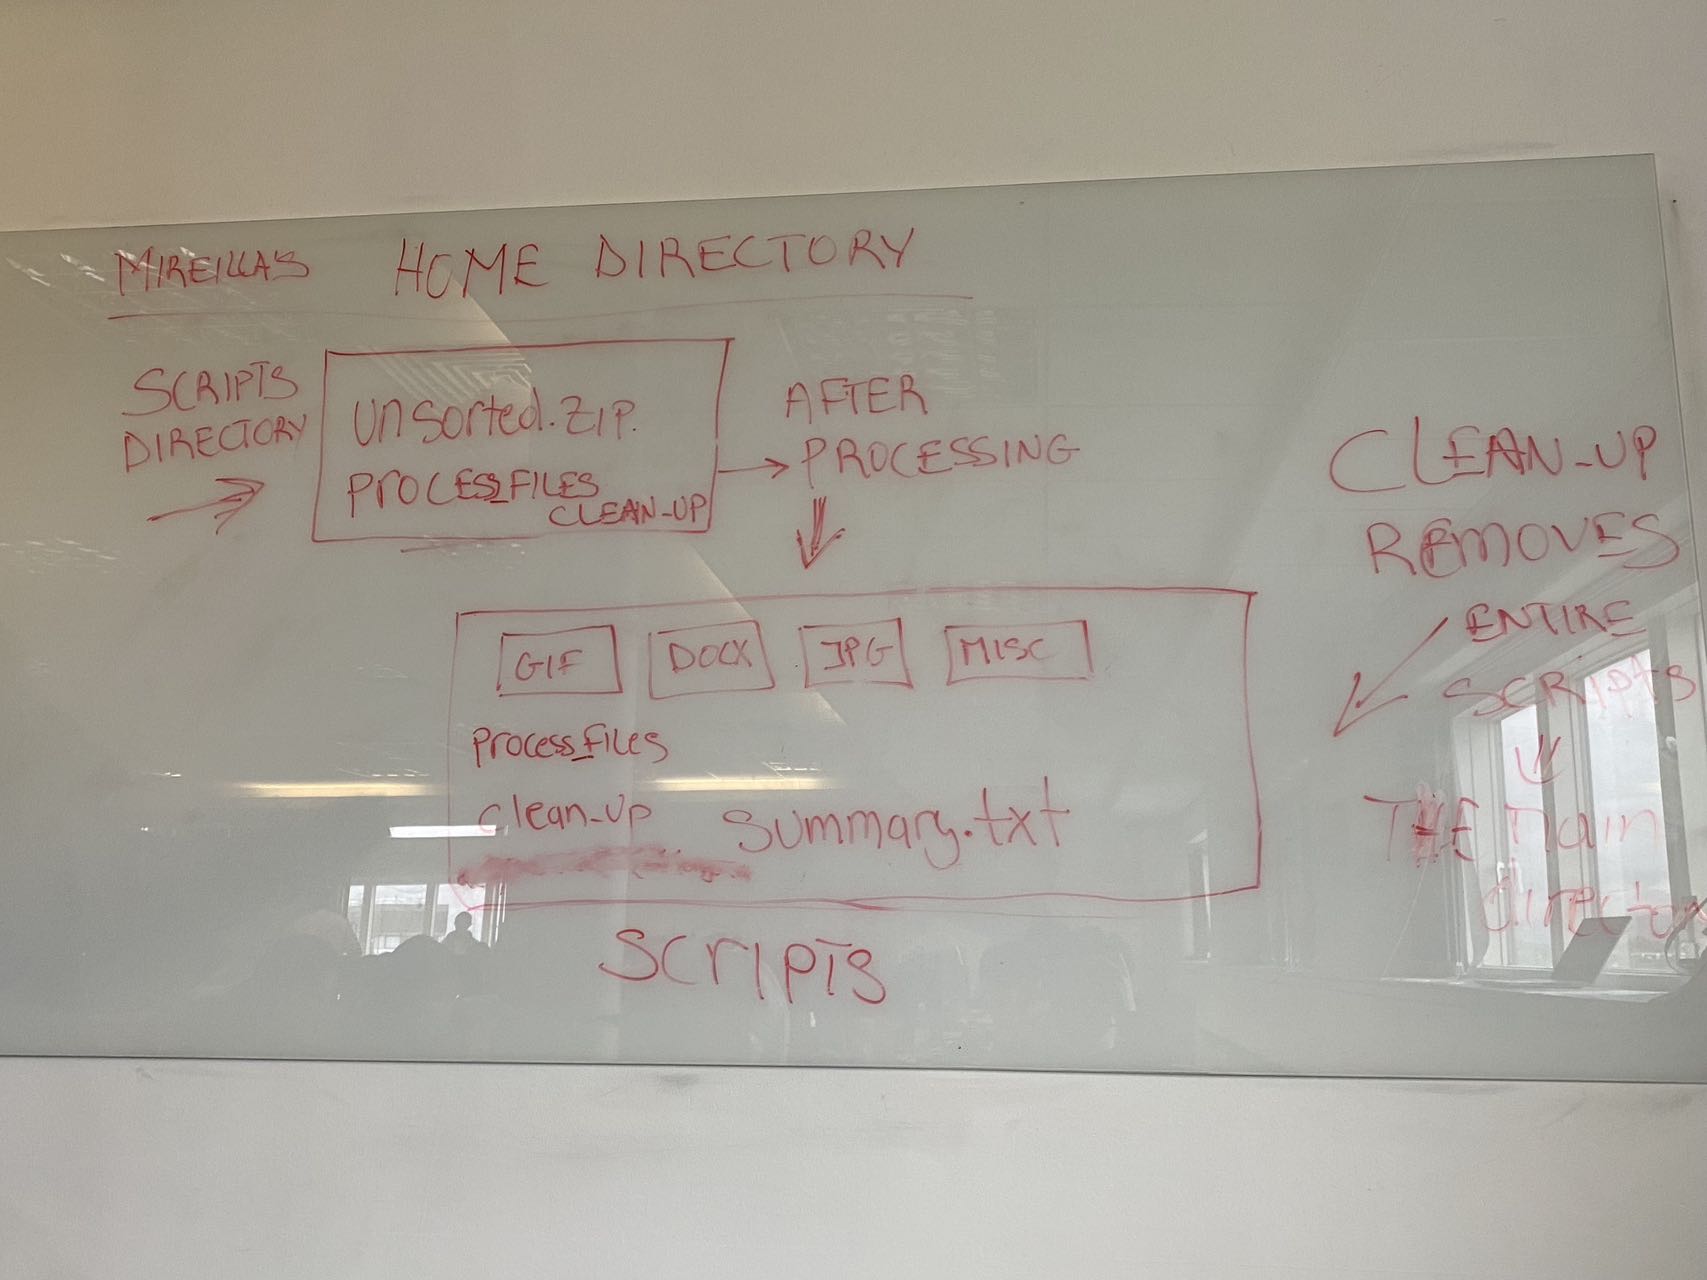 MIREILLA'S HOME DIRECTORY
SCRIPTS
DIRECTORY
unsorted.ZIP.
PROCESS_FILES
CLEAN-UP
AFTER
PROCESSING
GIF
DOCX
JPG
MISC
Process_files
clean-up
summary.txt
SCRIPTS
CLEAN-UP
REMOVES
ENTIRE
SCRIPTS
THE main
director